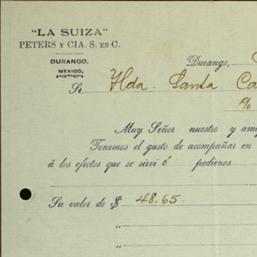 "LA SUIZA"
PETERS Y CIA. S. EN C.
DURANGO,
MEXICO,
Durango,
Sr Hda. Santa Ca
Muy Señor nuestro y ami
Tenemos el gusto de acompañar en
á los efectos que se sirvió ó pedirnos
Su valor de $ 48.65.
„
„